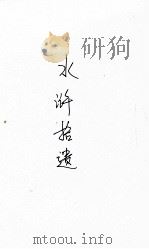 研狗
水浒拾遗
www.mtoou.info